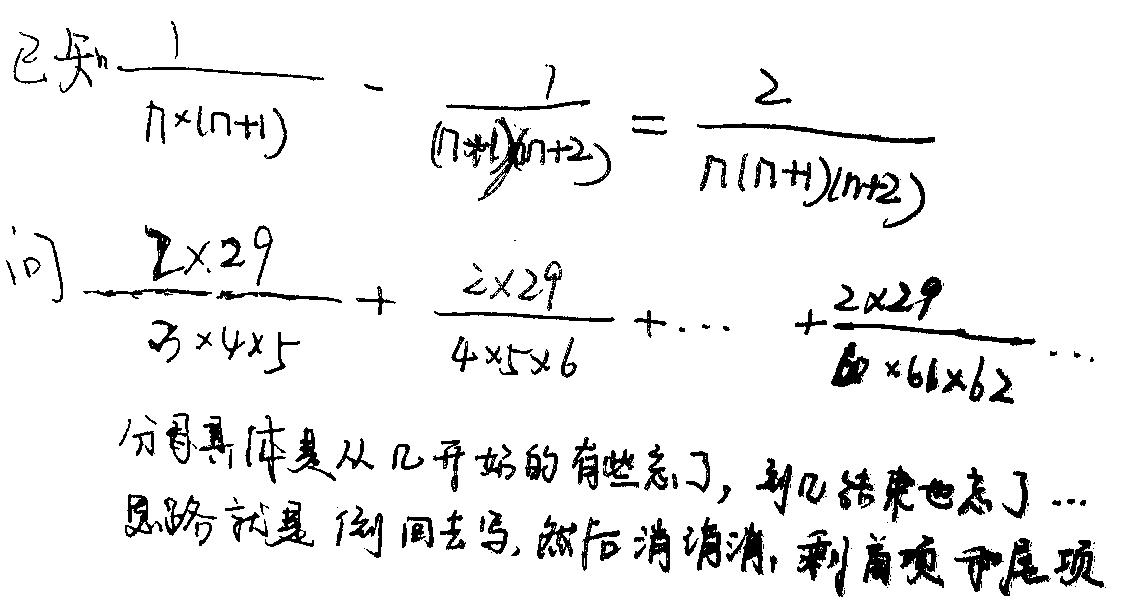 已知 1/(n×(n+1)) - 1/((n+1)(n+2)) = 2/(n(n+1)(n+2))
问 2×29/(3×4×5) + 2×29/(4×5×6) + ... + 2×29/(60×61×62) ...
分母具体是从几开始的有些忘了,到几结束也忘了...
思路就是倒回去写,然后消消消,剩首项和尾项